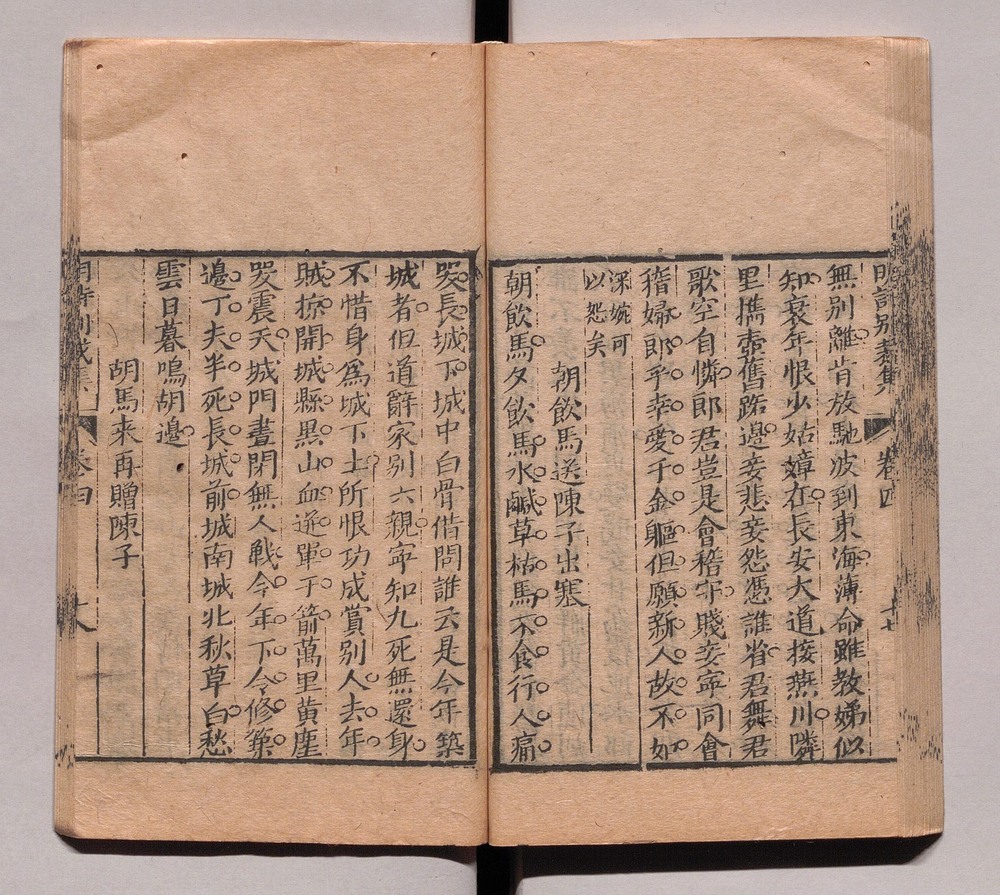 明詩别裁集
卷四
十七
無别離肯放馳波到東海薄命雖教娣似
知衰年恨少姑嫜在長安大道接燕川隣
里攜壺舊路邊妾悲妾怨憑誰省君舞君
歌空自憐郎君豈是會稽守賤妾寧同會
稽婦郎乎幸愛千金軀但願新人故不如
深婉可
以怨矣
朝飲馬送陳子出塞
朝飲馬夕飲馬水鹹草枯馬不食行人痛
哭長城下城中白骨借問誰云是今年築
城者但道辭家别六親寧知九死無還身
不惜身爲城下土所恨功成賞别人去年
賊掠開城縣黑山血迸單于箭萬里黄塵
哭震天城門晝閉無人戰今年下令修築
邊丁夫半死長城前城南城北秋草白愁
雲日暮鳴胡邊
胡馬來再贈陳子
明詩别裁集
卷四
十八